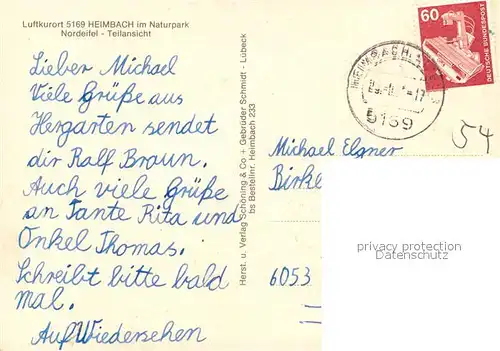 Luftkurort 5169 HEIMBACH im Naturpark
Nordeifel - Teilansicht
Lieber Michael
Viele Grüße aus
Hergarten sendet
dir Ralf Braun.
Auch viele Grüße
an Tante Rita und
Onkel Thomas.
Schreibt bitte bald
mal.
Auf Wiedersehen
Herst. u. Verlag Schöning & Co + Gebrüder Schmidt - Lübeck
bs Bestellnr. Heimbach 233
60
DEUTSCHE BUNDESPOST
HEIMBACH
-17
5169
54
Michael Elgner
Birke
privacy protection
Datenschutz
6053